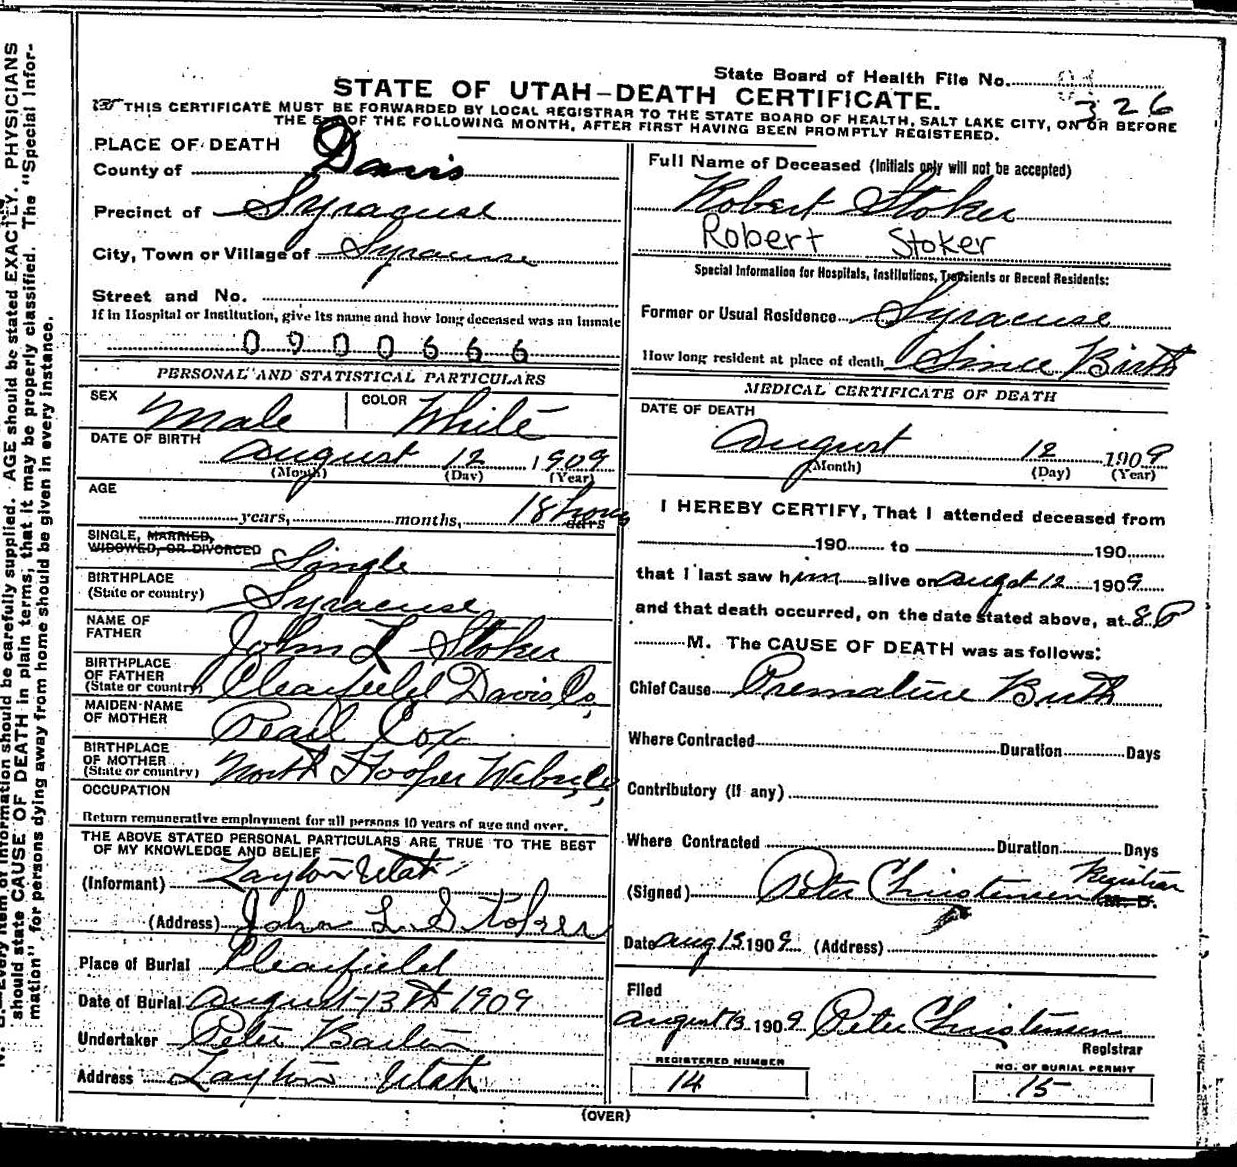 State Board of Health File No.
326
STATE OF UTAH—DEATH CERTIFICATE.
THIS CERTIFICATE MUST BE FORWARDED BY LOCAL REGISTRAR TO THE STATE BOARD OF HEALTH, SALT LAKE CITY, ON OR BEFORE
THE 5TH OF THE FOLLOWING MONTH, AFTER FIRST HAVING BEEN PROMPTLY REGISTERED.
PLACE OF DEATH
County of Davis
Precinct of Syracuse
City, Town or Village of Syracuse
Street and No.
If in Hospital or Institution, give its name and how long deceased was an inmate
0900666
PERSONAL AND STATISTICAL PARTICULARS
SEX Male COLOR White
DATE OF BIRTH August 12 1909
(Month) (Day) (Year)
AGE
years, months, 18 hours days
SINGLE, MARRIED,
WIDOWED, OR DIVORCED Single
BIRTHPLACE
(State or country) Syracuse
NAME OF
FATHER John L Stoker
BIRTHPLACE
OF FATHER
(State or country) Clearfield Davis Co,
MAIDEN NAME
OF MOTHER Pearl Cox
BIRTHPLACE
OF MOTHER
(State or country) North Hooper Weber Co,
OCCUPATION
Return remunerative employment for all persons 10 years of age and over.
THE ABOVE STATED PERSONAL PARTICULARS ARE TRUE TO THE BEST
OF MY KNOWLEDGE AND BELIEF
(Informant) Layton Utah
(Address) John L. Stoker
Place of Burial Clearfield
Date of Burial August 13th 1909
Undertaker Peter Barton
Address Layton Utah
Full Name of Deceased (Initials only will not be accepted)
Robert Stoker
Robert Stoker
Special Information for Hospitals, Institutions, Transients or Recent Residents:
Former or Usual Residence Syracuse
How long resident at place of death Since Birth
MEDICAL CERTIFICATE OF DEATH
DATE OF DEATH
August 12 1909
(Month) (Day) (Year)
I HEREBY CERTIFY, That I attended deceased from
190 to 190
that I last saw him alive on August 12 1909
and that death occurred, on the date stated above, at 8. P
M. The CAUSE OF DEATH was as follows:
Chief Cause Premature Birth
Where Contracted Duration Days
Contributory (if any)
Where Contracted Duration Days
(Signed) Peter Christensen Registrar M. D.
Date Aug 13 1909 (Address)
Filed
August 13 1909 Peter Christensen
Registrar
REGISTERED NUMBER
14
NO. OF BURIAL PERMIT
15
(OVER)
Every item of information should be carefully supplied. AGE should be stated EXACTLY. PHYSICIANS
should state CAUSE OF DEATH in plain terms, that it may be properly classified. The "Special Infor-
mation" for persons dying away from home should be given in every instance.